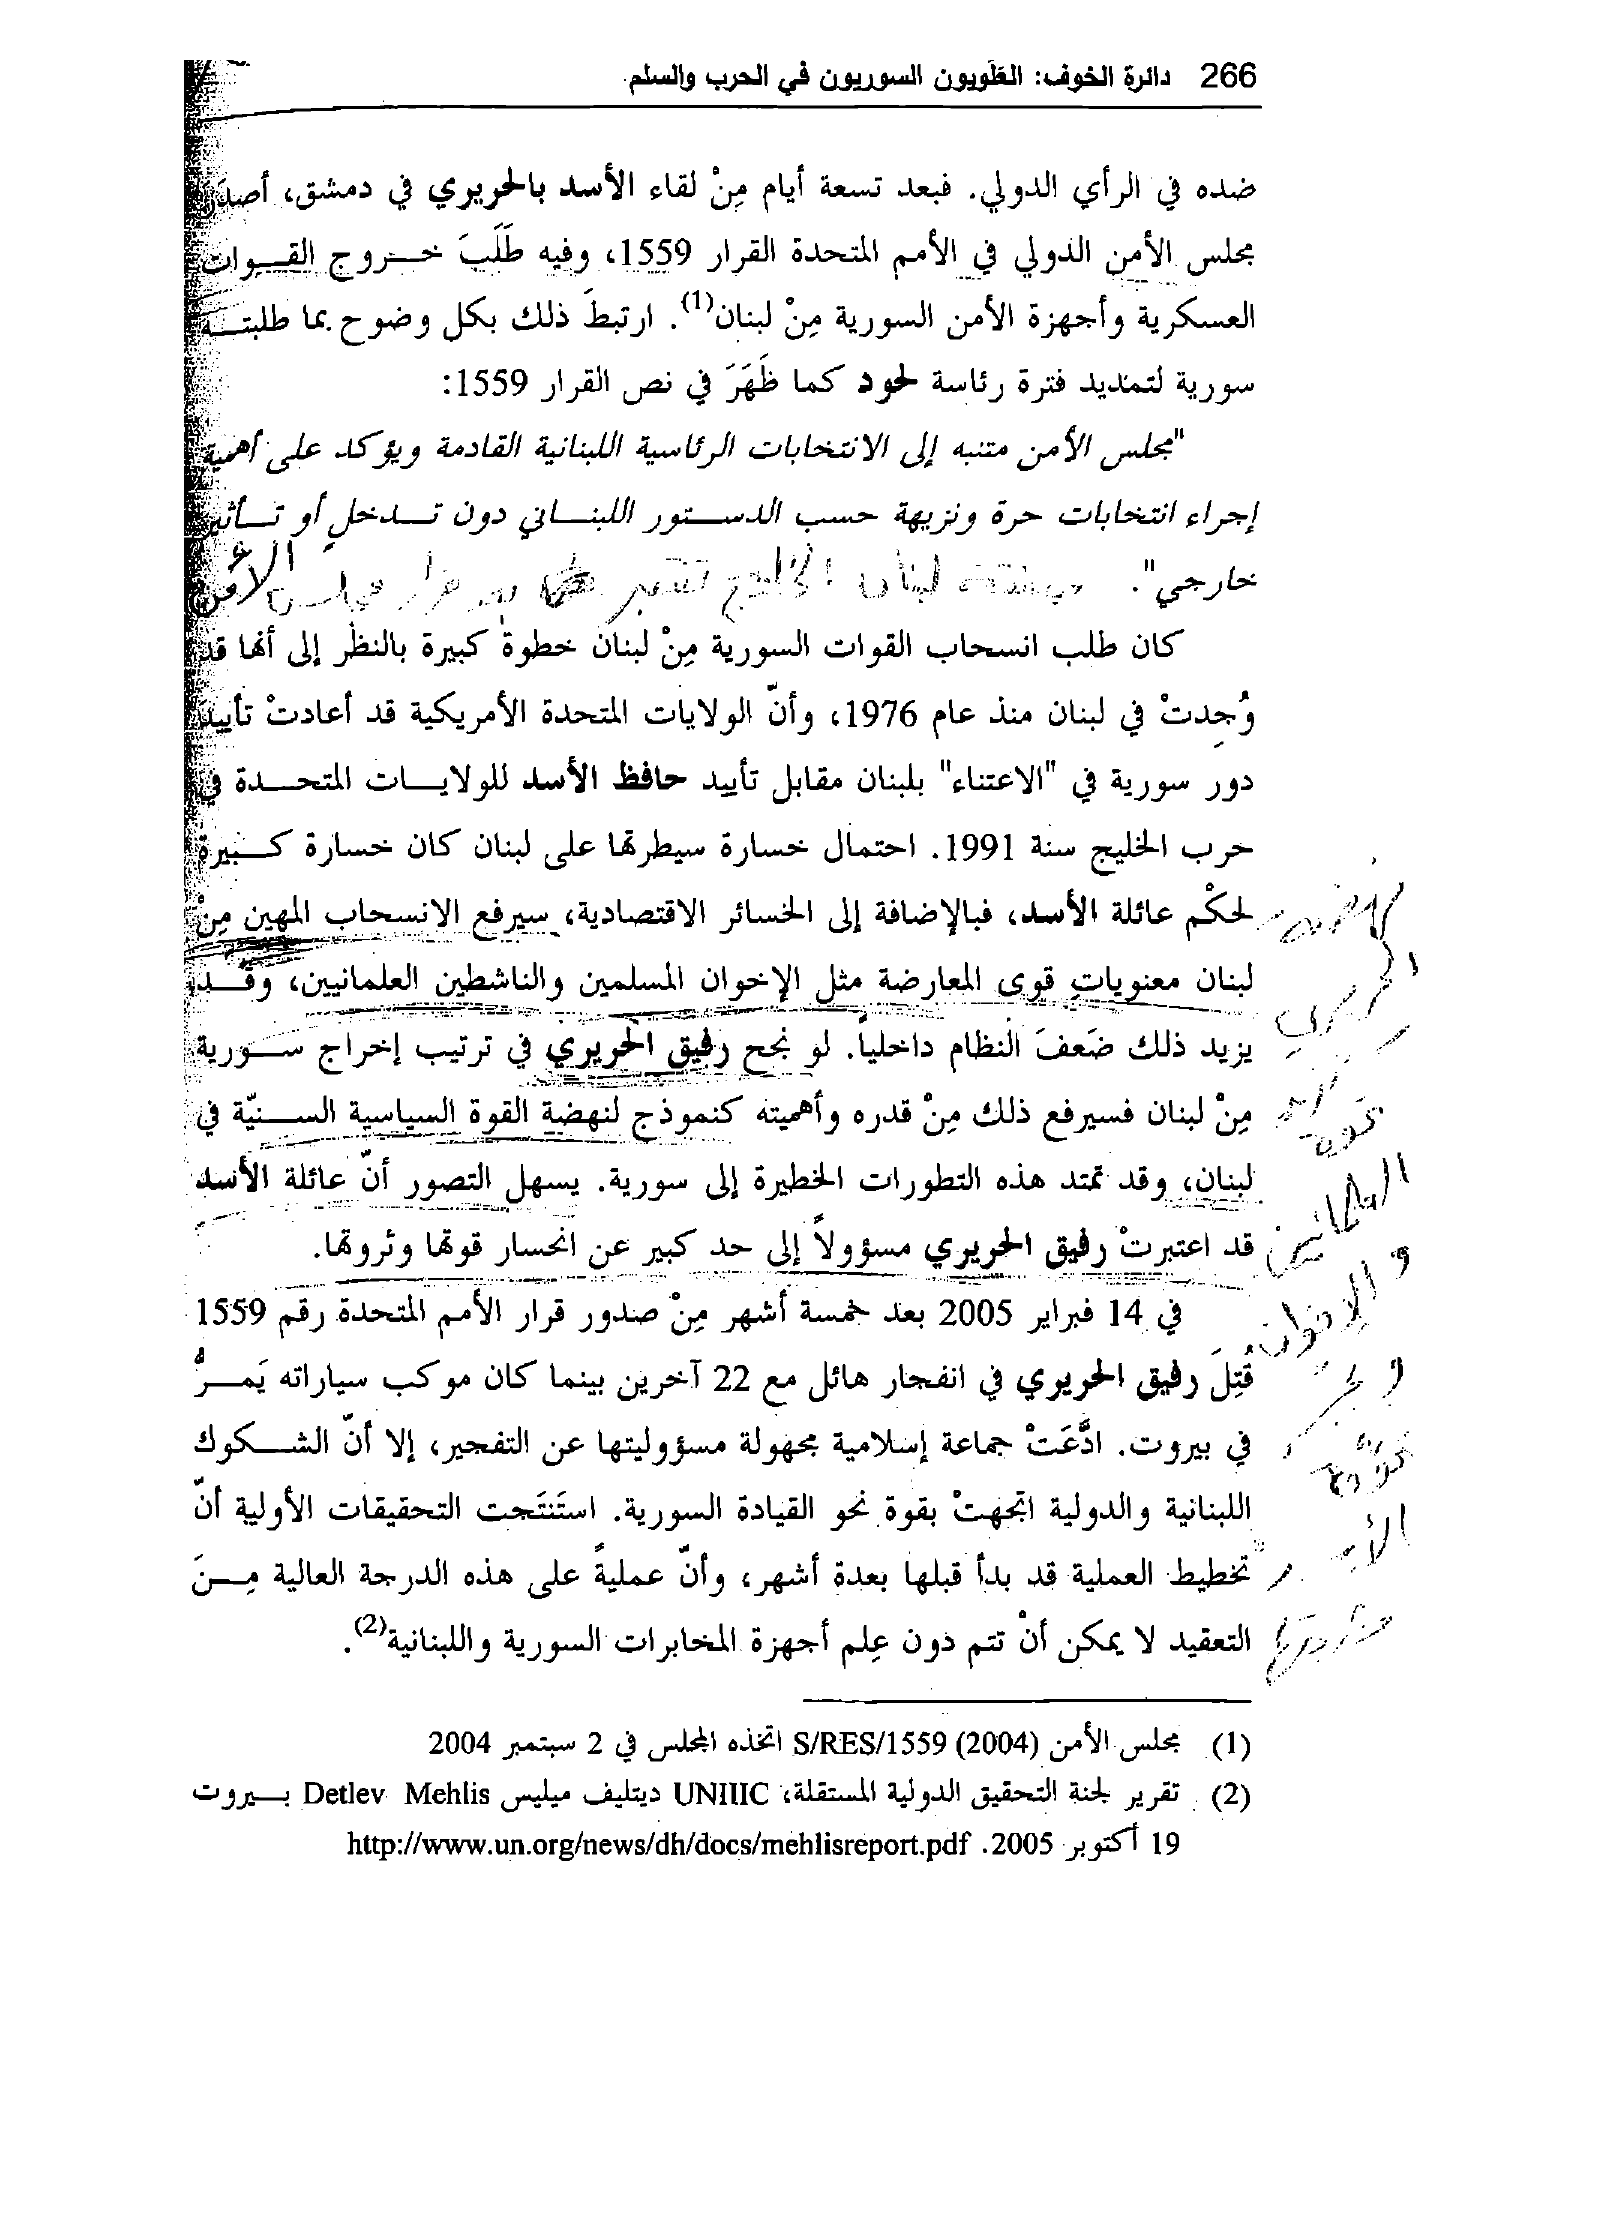 266 دائرة الخوف: العَلَويون السوريون في الحرب والسلم
ضده في الرأي الدولي. فبعد تسعة أيام مِنْ لقاء الأسد بالحريري في دمشق، أصدَرَ
مجلس الأمن الدولي في الأمم المتحدة القرار 1559، وفيه طَلَبَ خــروج القــوات
العسكرية وأجهزة الأمن السورية مِنْ لبنان(1). ارتبطَ ذلك بكل وضوح بما طلبتــه
سورية لتمديد فترة رئاسة لحود كما ظَهَرَ في نص القرار 1559:
"مجلس الأمن متنبه إلى الانتخابات الرئاسية اللبنانية القادمة ويؤكد على أهمية
إجراء انتخابات حرة ونزيهة حسب الدســتور اللبنــاني دون تــدخل أو تــأثير
خارجي". لبنان مجلس الأمن
كان طلب انسحاب القوات السورية مِنْ لبنان خطوةً كبيرة بالنظر إلى أنها قد
وُجِدتْ في لبنان منذ عام 1976، وأنّ الولايات المتحدة الأمريكية قد أعادتْ تأييد
دور سورية في "الاعتناء" بلبنان مقابل تأييد حافظ الأسد للولايــات المتحــدة في
حرب الخليج سنة 1991. احتمال خسارة سيطرتها على لبنان كان خسارة كــبيرة
لحكْم عائلة الأسد، فبالإضافة إلى الخسائر الاقتصادية، سيرفع الانسحاب المهين مِنْ
لبنان معنوياتِ قوى المعارضة مثل الإخوان المسلمين والناشطين العلمانيين، وقــد
يزيد ذلك ضَعفَ النظام داخلياً. لو نجح رفيق الحريري في ترتيب إخراج ســورية
مِنْ لبنان فسيرفع ذلك مِنْ قدره وأهميته كنموذج لنهضة القوة السياسية الســنيّة في
لبنان، وقد تمتد هذه التطورات الخطيرة إلى سورية. يسهل التصور أنّ عائلة الأسد
قد اعتبرتْ رفيق الحريري مسؤولاً إلى حد كبير عن انحسار قوتها وثروتها.
في 14 فبراير 2005 بعد خمسة أشهر مِنْ صدور قرار الأمم المتحدة رقم 1559
قُتِلَ رفيق الحريري في انفجار هائل مع 22 آخرين بينما كان موكب سياراته يَمــرُّ
في بيروت. ادَّعَتْ جماعة إسلامية مجهولة مسؤوليتها عن التفجير، إلا أنّ الشــكوك
اللبنانية والدولية اتجهتْ بقوة نحو القيادة السورية. استَنتَجت التحقيقات الأولية أنّ
تخطيط العملية قد بدأ قبلها بعدة أشهر، وأنّ عمليةً على هذه الدرجة العالية مِــنَ
التعقيد لا يمكن أنْ تتم دون عِلم أجهزة المخابرات السورية واللبنانية(2).
(1) مجلس الأمن S/RES/1559 (2004) اتخذه المجلس في 2 سبتمبر 2004
(2) تقرير لجنة التحقيق الدولية المستقلة، UNIIIC ديتليف ميليس Detlev Mehlis بــيروت
19 أكتوبر 2005. http://www.un.org/news/dh/docs/mehlisreport.pdf